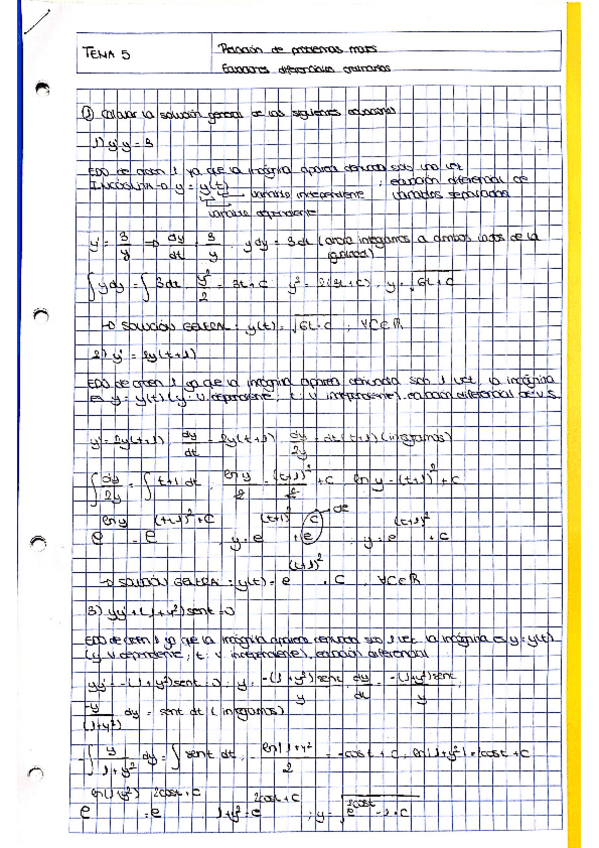 TEMA 5
Relación de problemas
Ecuaciones diferenciales ordinarias
① Calcular la solución general de las siguientes ecuaciones
1) y'y = 3
EDO de orden 1 ya que la incógnita aparece derivada solo una vez
INCÓGNITA → y = y(t) → variable independiente ; ecuación diferencial de variables separadas
variable dependiente
y' = 3/y ⇒ dy/dt = 3/y . y dy = 3dt (ahora integramos a ambos lados de la igualdad)
∫ y dy = ∫ 3dt . y²/2 = 3t + C y² = 2(3t + C) . y = √6t + C
→ SOLUCIÓN GENERAL : y(t) = √6t + C ; ∀C∈ℝ
2) y' = 2y(t+1)
EDO de orden 1 ya que la incógnita aparece derivada solo 1 vez, la incógnita
es y = y(t) (y = v. dependiente ; t: v. independiente). ecuación diferencial de v.s.
y' = 2y(t+1) . dy/dt = 2y(t+1) dy/2y = dt(t+1) (integramos)
∫ dy/2y = ∫ t+1 dt . ln y/2 = (t+1)²/2 + C ln y = (t+1)² + C
e^ln y = e^(t+1)²+C . y = e^(t+1)² + e^C . y = e^(t+1)² . C
→ SOLUCIÓN GENERAL : y(t) = e^(t+1)² . C , ∀C∈ℝ
3) yy' + (1+y²) sent = 0
EDO de orden 1 ya que la incógnita aparece derivada solo 1 vez. la incógnita es y = y(t)
(y v. dependiente ; t: v. independiente). ecuación diferencial
yy' = -(1+y²) sent = 0 . y' = -(1+y²) sent/y dy/dt = -(1+y²) sent/y
-y/(1+y²) dy = sent dt (integramos)
-∫ y/1+y² dy = ∫ sent dt . -ln|1+y²/2 = -cost + C , ln(1+y²) = 2cost + C
e^ln(1+y²) = e^2cost+C . 1+y² = e^2cost+C ; y = √e^2cost -1 . C